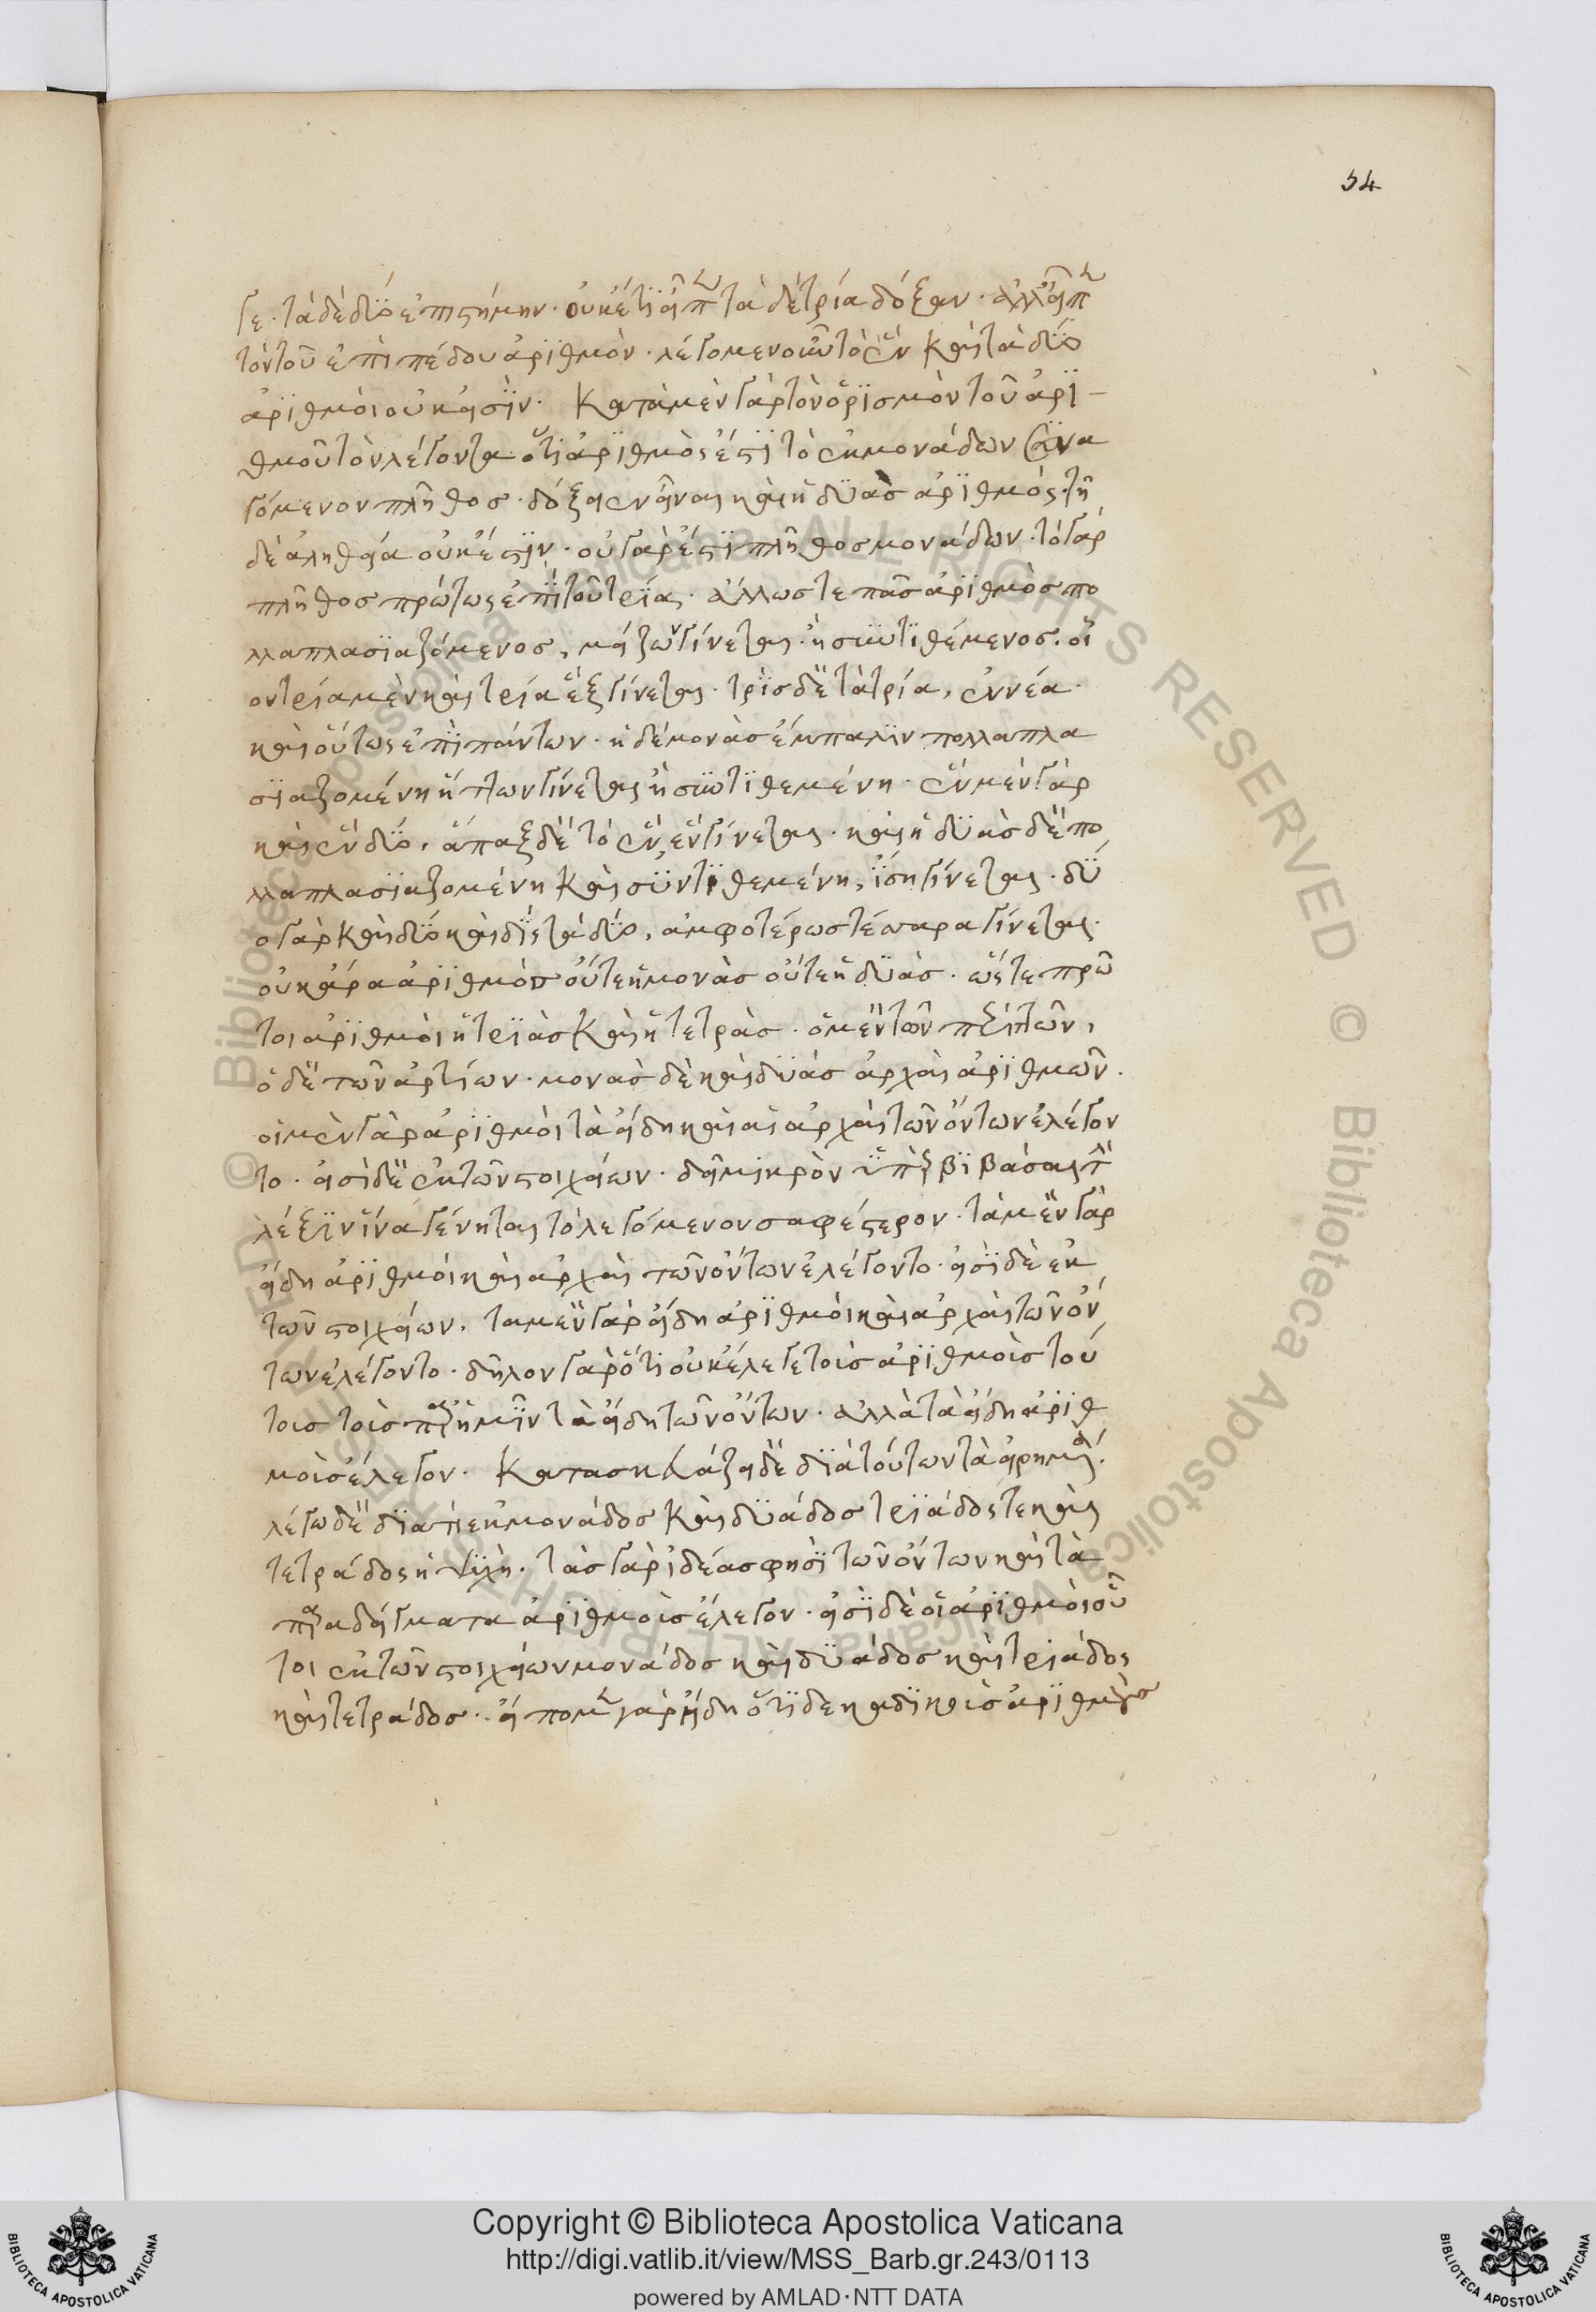 54
γε. τὰ δὲ δύο ἐπιστήμην. οὐκέτι εἶπεν τὰ δὲ τρία δόξαν. ἀλλ' εἶπε
τὸν τοῦ ἐπιπέδου ἀριθμὸν. λέγομεν οὖν τὸ ἓν καὶ τὰ δύο
ἀριθμοὶ οὐκ εἰσὶν. κατὰ μὲν γὰρ τὸν ὁρισμὸν τοῦ ἀρι-
θμοῦ τὸν λέγοντα ὅτι ἀριθμὸς ἐστὶ τὸ ἐκ μονάδων συνα
γόμενον πλῆθος. δόξειεν εἶναι καὶ ἡ δυὰς ἀριθμός. τῆ
δὲ ἀληθεία οὐκ ἔστιν. οὐ γάρ ἐστι πλῆθος μονάδων. τὸ γὰρ
πλῆθος πρώτως ἐπὶ τοῦ τρία. ἄλλως τε πᾶς ἀριθμὸς πο
λλαπλασιαζόμενος, μείζων γίνεται. ἢ συντιθέμενος. οἷ
ον τρία μὲν καὶ τρία ἓξ γίνεται. τρὶς δὲ τὰ τρία, ἐννέα.
καὶ οὕτως ἐπὶ πάντων. ἡ δὲ μονὰς ἔμπαλιν πολλαπλα
σιαζομένη ἥττων γίνεται ἢ συντιθεμένη. ἓν μὲν γὰρ
καὶ ἓν δύο, ἅπαξ δὲ τὸ ἕν, ἓν γίνεται. καὶ ἡ δυὰς δὲ πο
λλαπλασιαζομένη καὶ συντιθεμένη, ἴση γίνεται. δύ
ο γὰρ καὶ δύο καὶ δὶς τὰ δύο, ἀμφοτέρως τέσσαρα γίνεται.
οὐκ ἄρα ἀριθμὸς οὔτε ἡ μονὰς οὔτε ἡ δυὰς. ὥστε πρῶ
τοι ἀριθμοὶ ἡ τριὰς καὶ ἡ τετρὰς. ὁ μὲν τῶν περιττῶν,
ὁ δὲ τῶν ἀρτίων. μονὰς δὲ καὶ δυὰς ἀρχαὶ ἀριθμῶν.
οἱ μὲν γὰρ ἀριθμοὶ τὰ εἴδη καὶ αἱ ἀρχαὶ τῶν ὄντων ἐλέγον
το. εἰσὶ δὲ ἐκ τῶν στοιχείων. δεῖ μικρὸν ὑπερβιβάσαι τὴν
λέξιν ἵνα γένηται τὸ λεγόμενον σαφέστερον. τὰ μὲν γὰρ
εἴδη ἀριθμοὶ καὶ ἀρχαὶ τῶν ὄντων ἐλέγοντο. εἰσὶ δὲ ἐκ
τῶν στοιχείων. τὰ μὲν γὰρ εἴδη ἀριθμοὶ καὶ ἀρχαὶ τῶν ὄν
των ἐλέγοντο. δῆλον γὰρ ὅτι οὐκ ἔλεγε τοῖς ἀριθμοῖς τού
τοις τοῖς παρ' ἡμῖν τὰ εἴδη τῶν ὄντων. ἀλλὰ τὰ εἴδη ἀριθ
μοὶς ἔλεγον. κατασκευάζει δὲ διὰ τούτων τὰ εἰρημένα.
λέγω δὲ διατί ἐκ μονάδος καὶ δυάδος τριάδος τε καὶ
τετράδος ἡ ψυχὴ. τὰς γὰρ ἰδέας φησὶ τῶν ὄντων καὶ τὰ
παραδείγματα ἀριθμοὶς ἔλεγον. εἰσὶ δὲ οἱ ἀριθμοὶ οὗ
τοι ἐκ τῶν στοιχείων μονάδος καὶ δυάδος καὶ τριάδος
καὶ τετράδος. εἴπομεν γὰρ ἤδη ὅτι δεκαδικοὶς ἀριθμοὺς